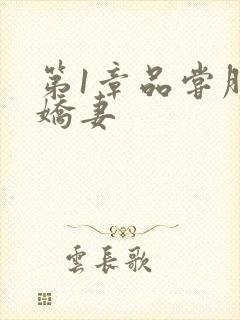 第1章品尝朋
娇妻
雲長歌